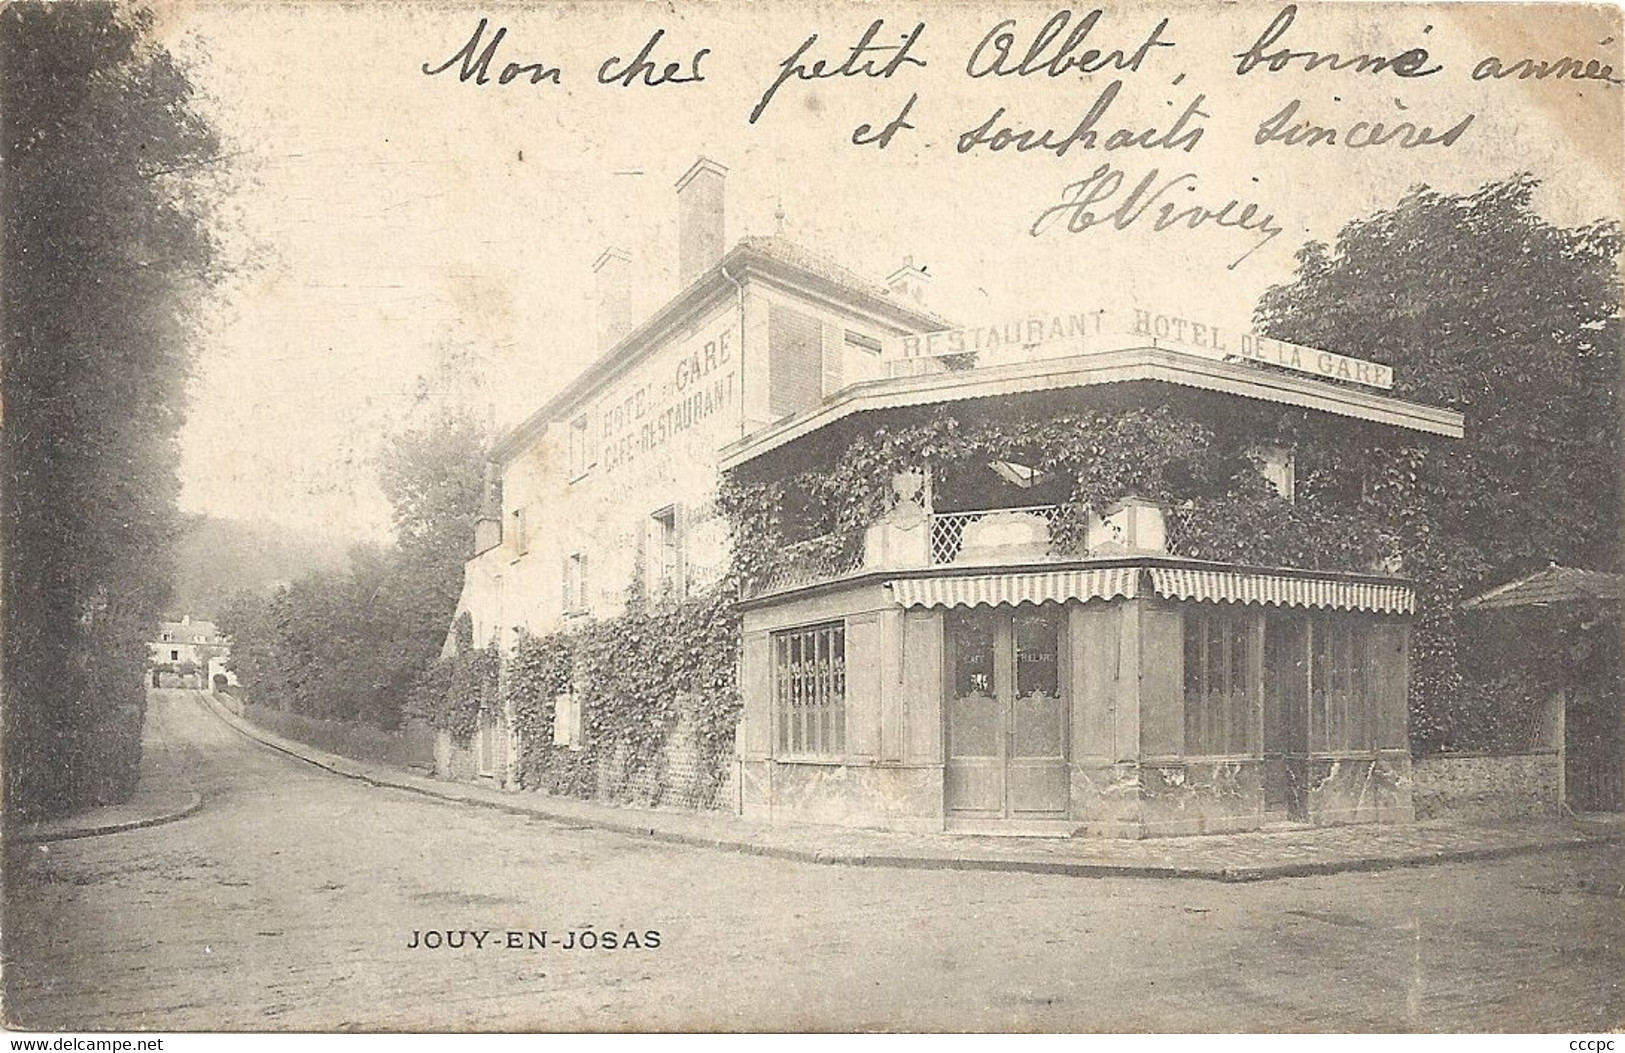 Mon cher petit Albert, bonne année
et souhaits sincères
HVivien
RESTAURANT HOTEL DE LA GARE
HOTEL DE LA GARE
CAFÉ-RESTAURANT
CAFÉ
BILLARD
JOUY-EN-JOSAS
www.delcampe.net
cccpc